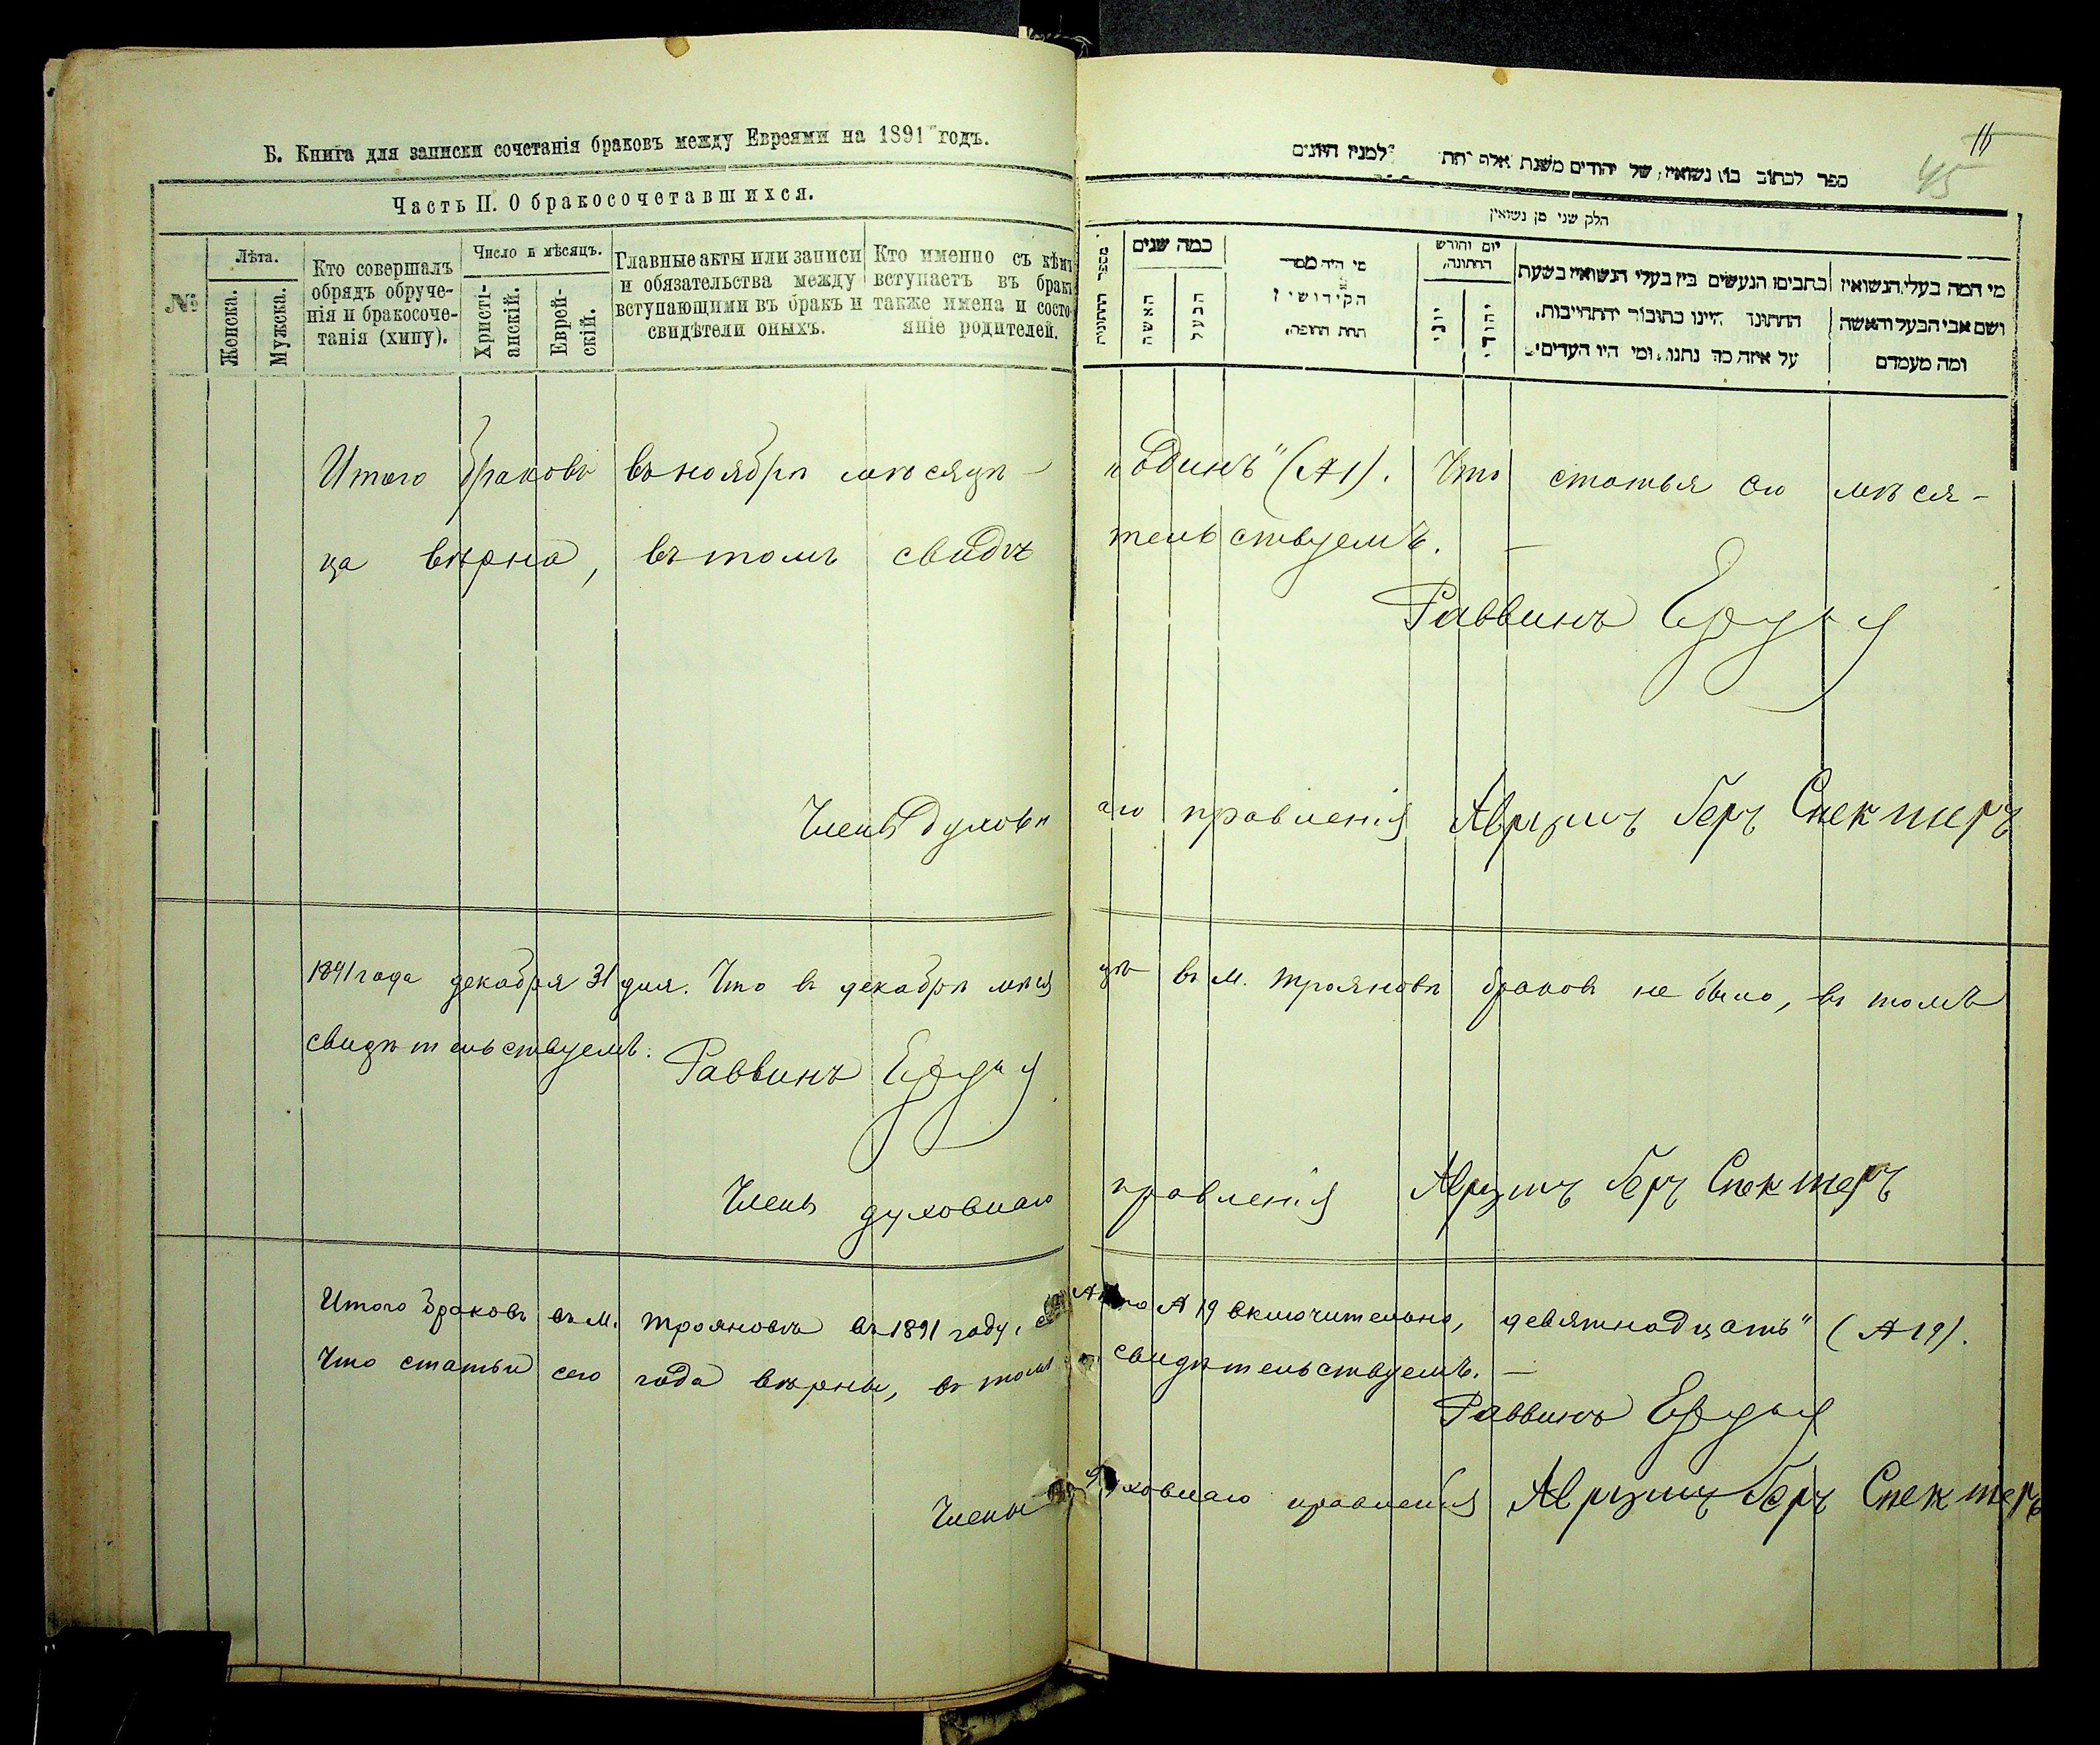 Б. Книга для записки сочетанія браковъ между Евреями на 1891 годъ.
Часть II. О бракосочетавшихся.
№
Лѣта.
Женска.
Мужска.
Кто совершалъ
обрядъ обруче-
нія и бракосоче-
танія (хипу).
Число и мѣсяцъ.
Христі-
анскій.
Еврей-
скій.
Главные акты или записи
и обязательства между
вступающими въ бракъ и
свидѣтели оныхъ.
Кто именно съ кѣмъ
вступаетъ въ бракъ
также имена и состо
яніе родителей.
11
45
ספר לכתוב בו נשואין של יהודים משנת אלף תת למנין היונים
חלק שני מן נשואין
מספר החתונות
כמה שנים
האשה
הבעל
מי היה מסדר
הקידושין
תחת החופה,
יום וחודש
החתונה,
יוני
יהודי
כתבים הנעשים בין בעלי הנשואין בשעת
החתונה היינו כתובה והתחייבות,
על איזה כה נתנו, ומי היו העדים
מי המה בעלי הנשואין
ושם אבי הבעל והאשה
ומה מעמדם
Итого браковъ въ ноябрѣ мѣсяцѣ - "Одинъ" (№1). Что статья сего мѣся-
ца вѣрна, въ томъ свидѣтельствуемъ. —
Раввинъ
Членъ духовнаго правленія Аврумъ Беръ Спекторъ
1891 года декабря 31 дня. Что въ декабрѣ мѣсяцѣ въ м. Трояновѣ браковъ не было, въ томъ
свидѣтельствуемъ.
Раввинъ
Членъ духовнаго правленія Аврумъ Беръ Спекторъ
Итого браковъ въ м. Трояновѣ въ 1891 году, № 19 включительно, девятнадцать" (№ 19).
Что статьи сего года вѣрны, въ томъ свидѣтельствуемъ. —
Раввинъ
Членъ духовнаго правленія Аврумъ Беръ Спекторъ